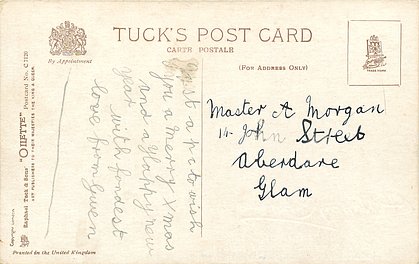 TUCK'S POST CARD
CARTE POSTALE
By Appointment
(FOR ADDRESS ONLY)
TRADE MARK
Raphael Tuck & Sons' "OILETTE" Postcard No. C 7120
ART PUBLISHERS TO THEIR MAJESTIES THE KING & QUEEN.
Copyright
Just a p.c to wish
you a merry Xmas
and a Happy new
year with fondest
love from Gwen
Master A Morgan
14 John Street
Aberdare
Glam
Printed in the United Kingdom